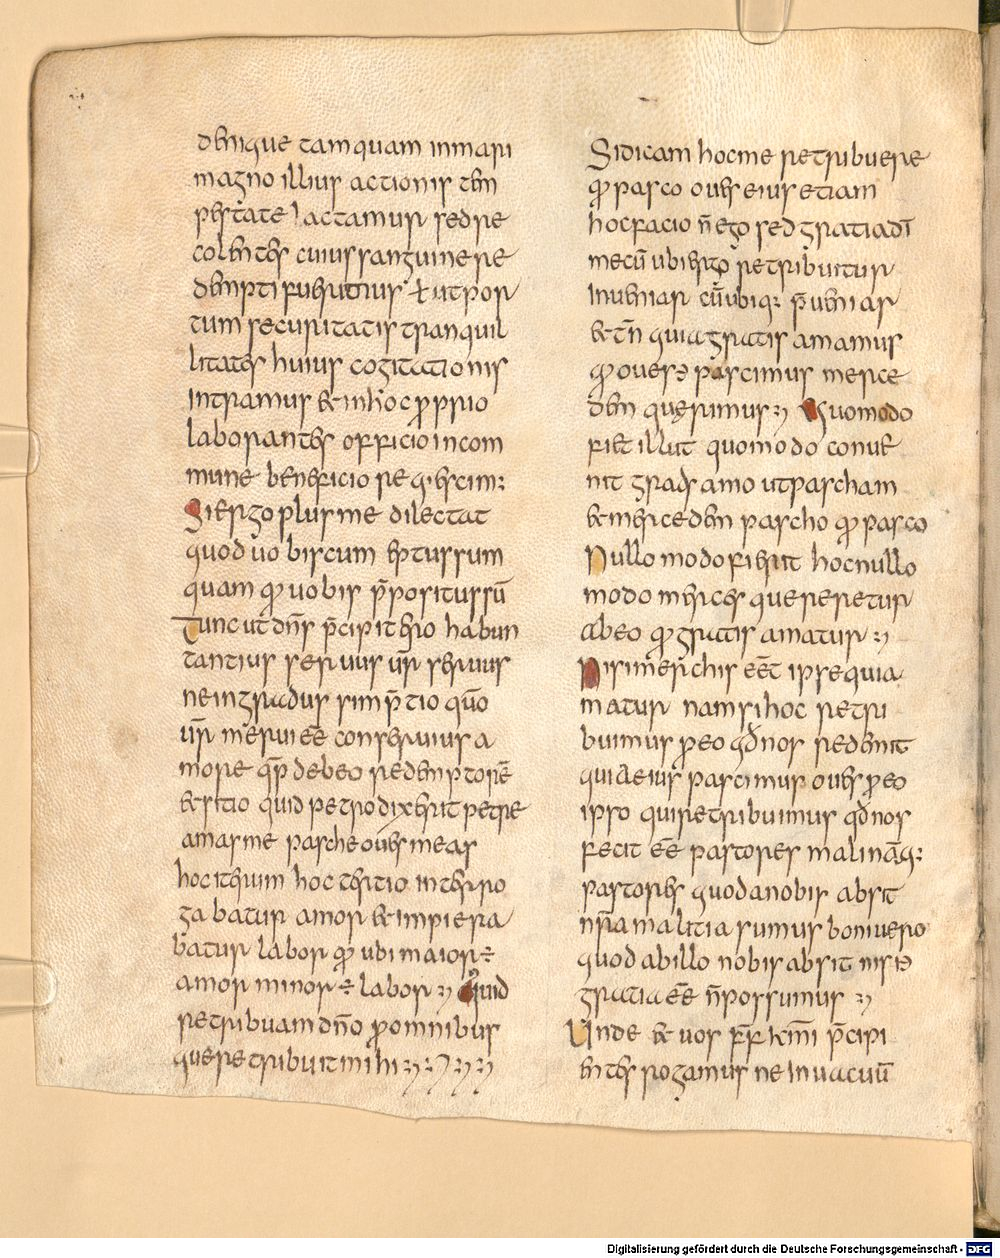 denique tamquam inmari
magno illius actionis tem
pestate iactamur sedre
colentes cuiussanguinere
dempti fuerimus uelutpor
tum securitatis tranquil
litates huius cogitationis
intramus & inhoc proprio
laborantes officio incom
mune beneficio reqiescim;
Siergo plusme dilectat
quod uobiscum emptussum
quam quod uobis p̄positussū
Tunc ut dn̄s p̄cipit ero habun
tantius seruus ur̄ seruus
neingradus sim p̄tio quō
ur̄ merui eē conseruus a
more q̄p debeo redemptorē
&scio quid petrodixerit petre
amasme pasce oues meas
hoc iterum hoc tertio interro
gabatur amor & impera
batur labor quod ubi maior ē
amor minor ē labor Quid
retribuam dn̄o pro omnibus
queretribuit mihi
Sidicam hocme retribuere
quod pasco oues eius etiam
hocfacio n̄ego sed gratiadī
mecū ubiergo retribuitur
inueniar cū ubiq; p̄ueniar
&tn̄ quiagratis amamus
quod oueses pascimus merce
dem querimus Quomodo
fi& illut quomodo conue
nit gratis amo utpascham
&mercedem pascho quod pasco
Nullo modo fierit hocnullo
modo merces quereretur
abeo quod gratis amatur
Nisimerchis eēt ipsequia
matur namsi hoc retri
buimus proeo qdnos redemit
quiaeius pascimus oues proeo
ipso quiretribuimus qdnos
fecit eē pastores malināq;
pastores quodanobis absit
nr̄a malitia sumus boniuero
quod abillo nobis absit nisi ei
gratia eē n̄possumus
Unde & uos fr̄ kmī p̄cipi
entes rogamus ne inuacuū
Digitalisierung gefördert durch die Deutsche Forschungsgemeinschaft - DFG